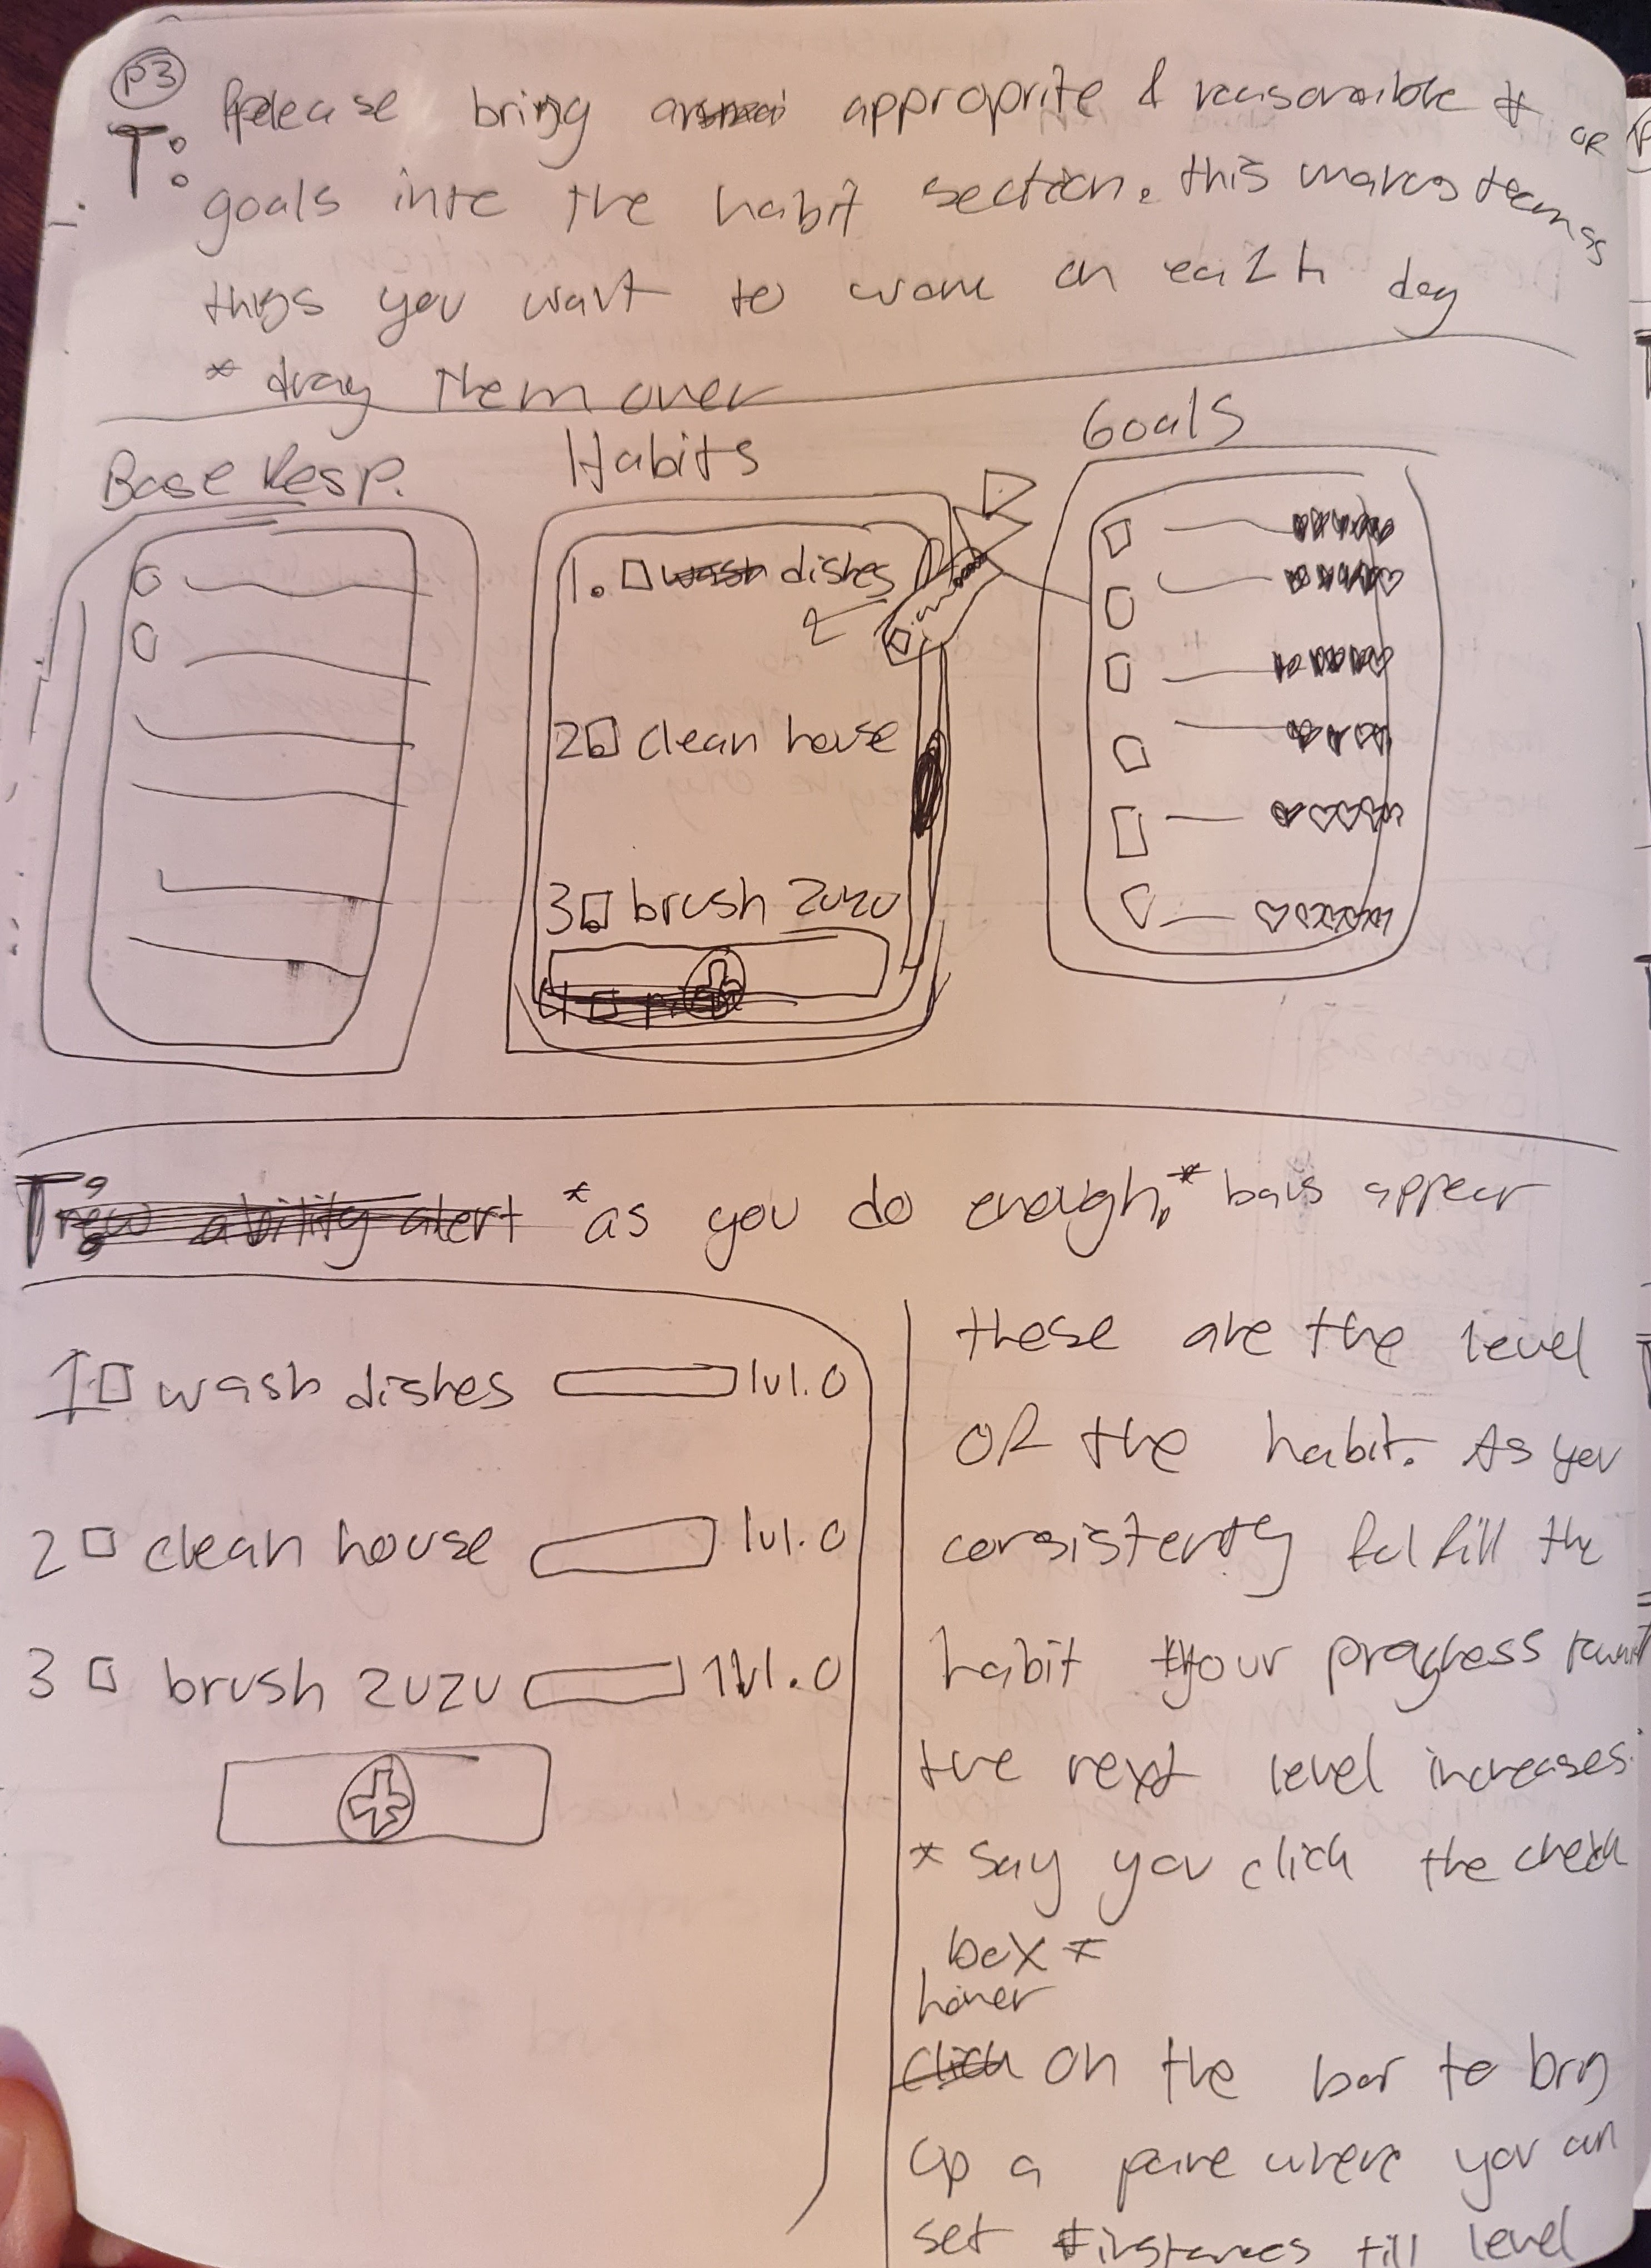 P3
T: Please bring approprite & reasonaible # OR
goals into the habit section. this makes them as
things you want to work on each day
* drag them over
Base Resp.
Habits
Goals
1. wash dishes
2 clean house
3 brush zuzu
T: new ability alert *as you do enough,* bars appear
1 wash dishes lvl.0
2 clean house lvl.0
3 brush zuzu lvl.0
these are the level
OF the habit. As you
consistently fulfill the
habit your progress toward
the next level increases.
* say you click the check
box *
hover
click on the bar to bring
up a pane where you can
set # instances till level